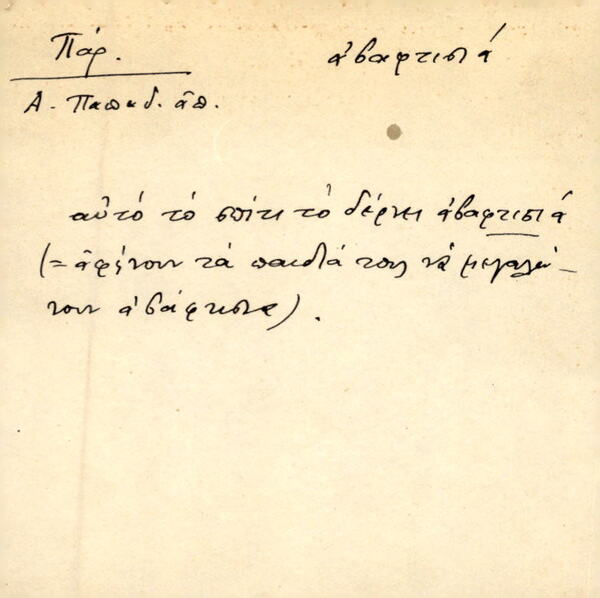 Πάρ.
ἀβαφτισιά
Α. Παπαδ. ἀπ.
αὐτό τό σπίτι τό δέρνει ἀβαφτισιά
(= ἀφήνουν τά παιδιά τους νά μεγαλώ-
νουν ἀβάφτιστα).